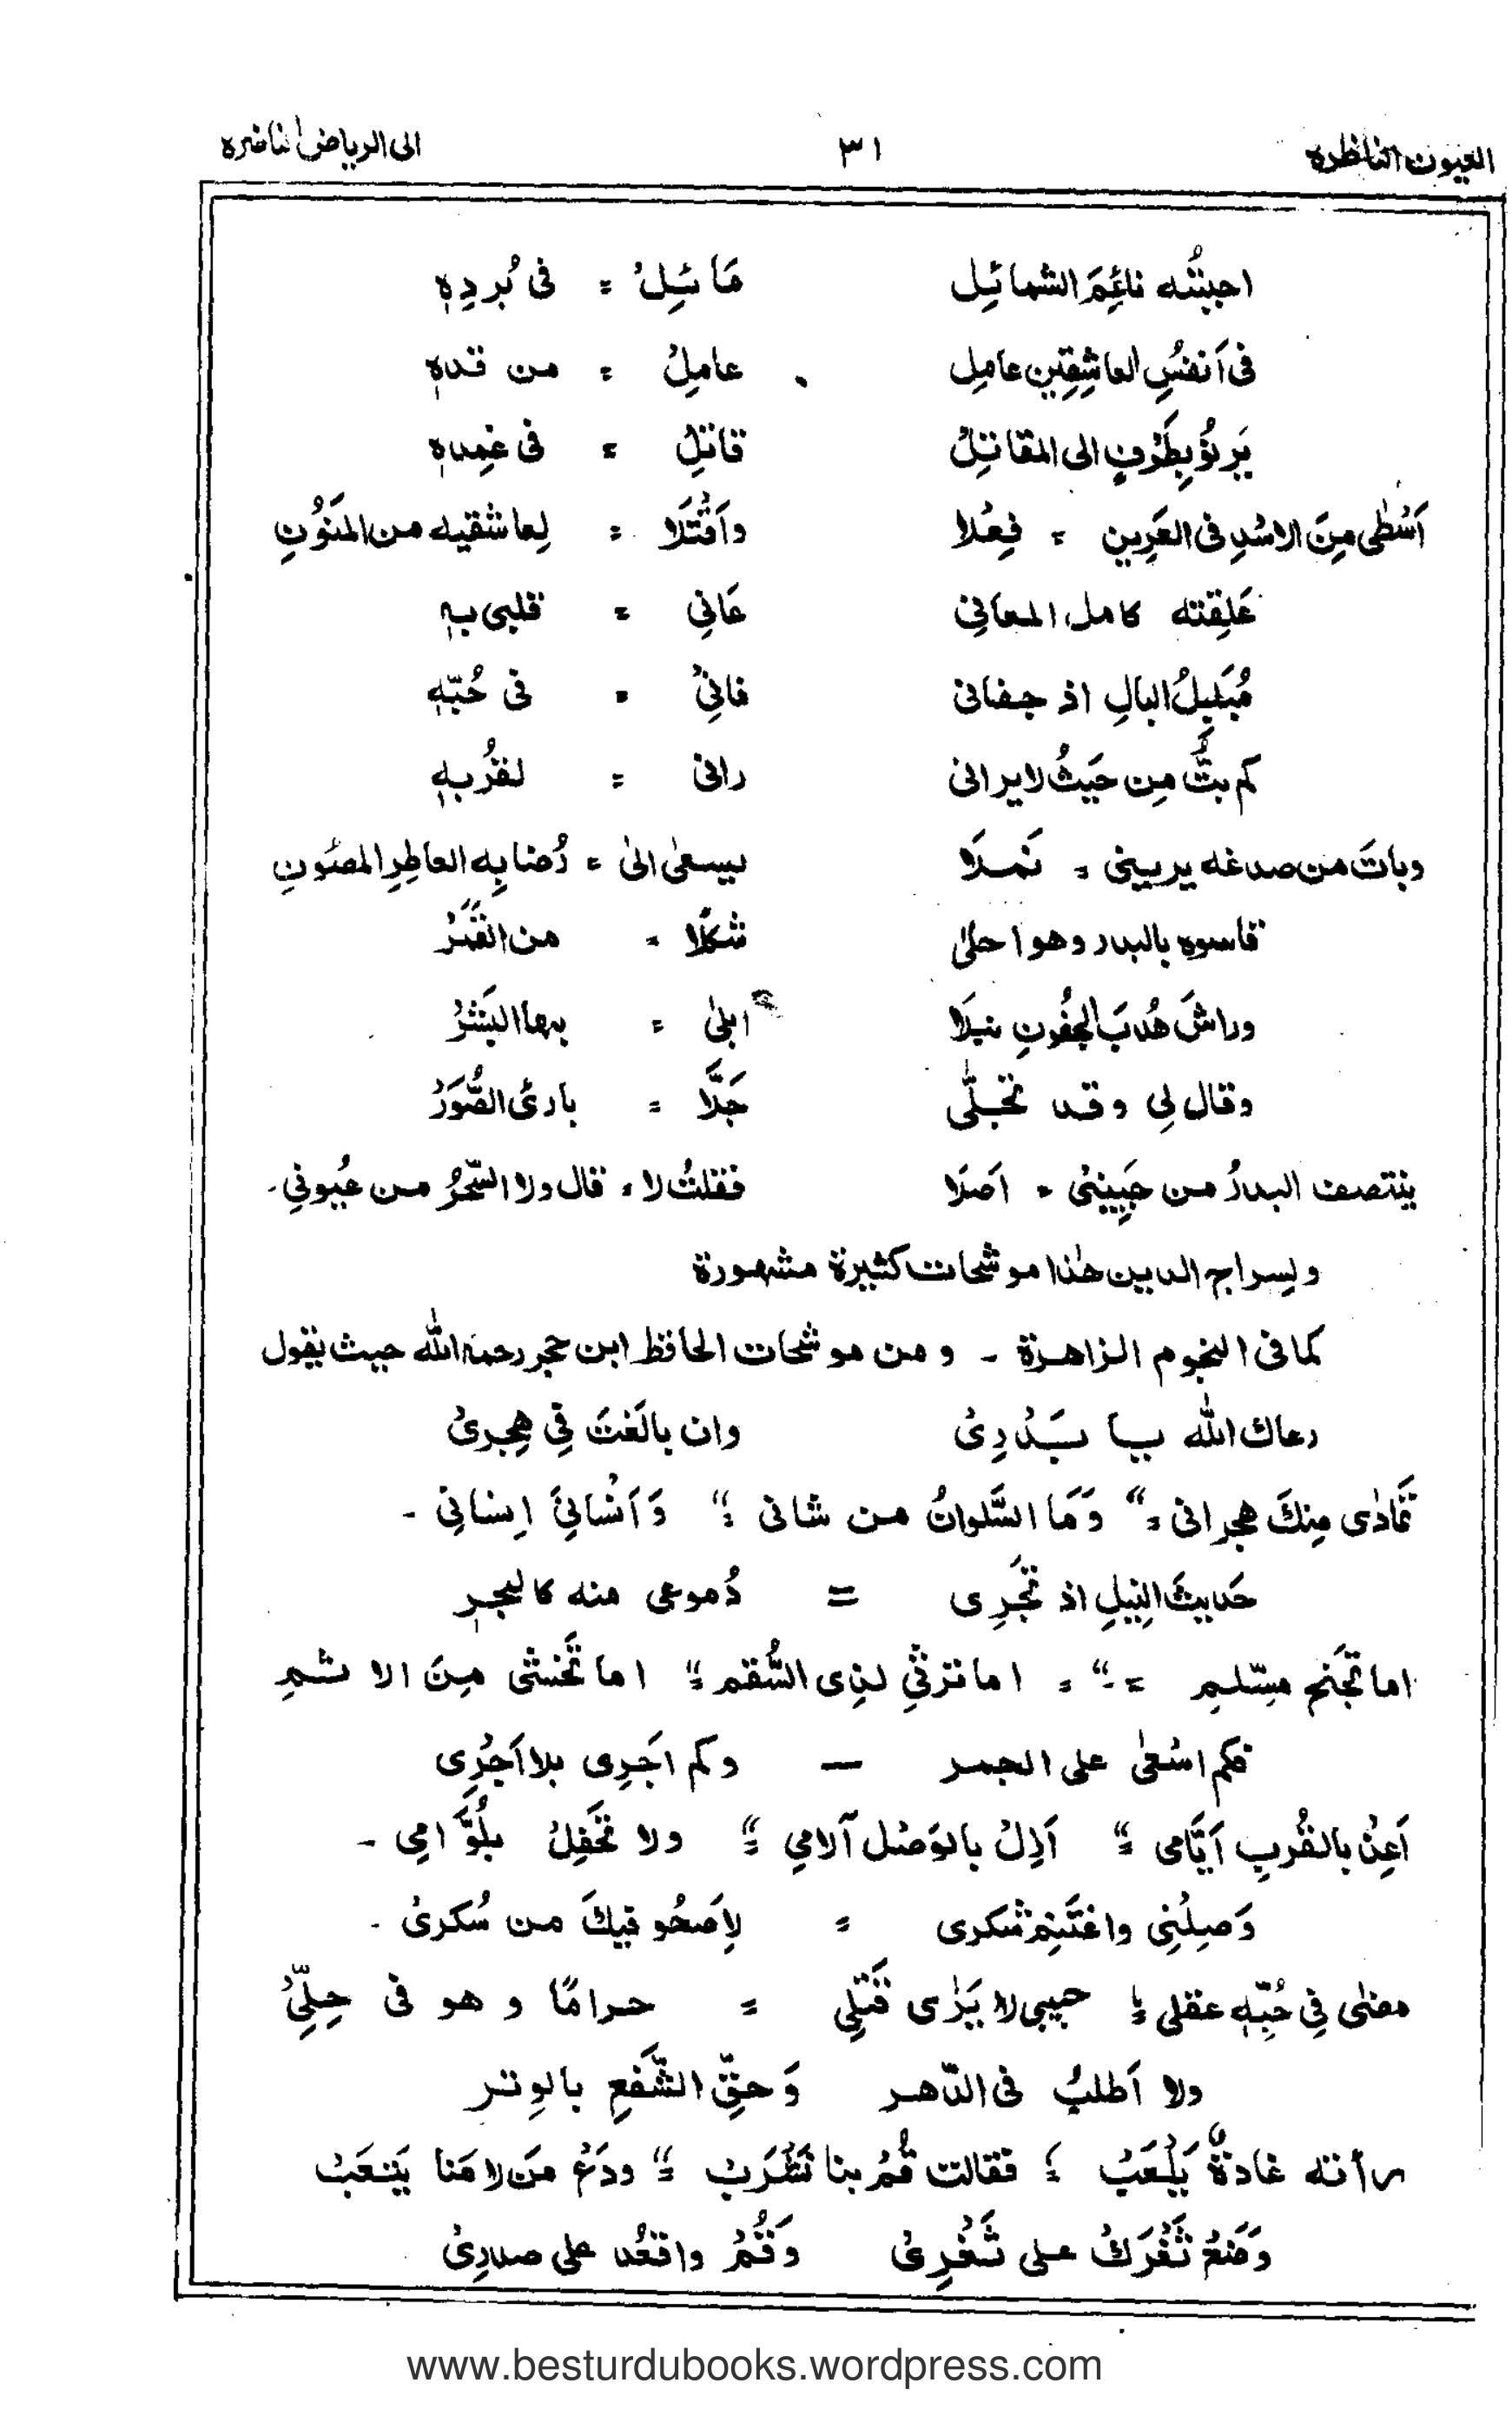 العيون الناظرة ٣١ الى الرياض الناضره
احببتُه نائِمَ الشمائِل مَائِلُ = فى بُردِهٖ
فى اَنفُسِ العاشِقِين عامِل عامِلُ = من قدهٖ
يَرنُوْ بِطَرْفٍ الى المقاتِلْ قاتلِ = فى غِمدهٖ
اَسْطٰى مِنَ الاسْدِ فى العَرِين = فِعْلا واَقْتَلَا = لِعاشقيه من المَنَوُنِ
عَلِقته كامل المعانِى عَانِى = قلبى بهٖ
مُبَلبِلُ البالِ اذ جفانى فانِىْ = فى حُبّهٖ
كم بتُّ مِن حَيثُ لا يرانى رانى = لقُربهٖ
وباتَ من صدغه يرينى = نَملَا يسعٰى الىٰ = رُضابِه العاطِرِ المصئونِ
قاسوه بالبدر وهو احلىٰ شكلًا = من القَمَرْ
وراشَ هُدبَ الجفُونِ نبلَا ابلىٰ = بها البَشَرْ
وقال لِى وقد تجلّٰى جَلَّا = بارئ الصُّوَرْ
ينتصف البدرُ من جَبِينىْ = اصلَا فقلتُ لا = قال ولا السِّحرُ من عُيونِى۔
ولِسراج الدين هٰذا موشحات كثيرة مشهورة
كما فى النجوم الزاهرة ۔ ومن موشحات الحافظ ابن حجر رحمه الله حيث يقول
رعاك الله يا بَدْرِىْ وان بالَغتَ فِى هِجرىْ
تَمَادٰى مِنكَ هجرانى = " وَمَا السَّلوانُ من شانى = " وَاَنْسَانِىَ اِنسانِى ۔
حَديثَ النِيلِ اذ تَجْرِى = دُموعى منه كالبحرِ
اما تَجْنَح مِسّلمِ = " = اما ترْثِى لذِى السُّقم = " اما تَخشى مِنَ الاثمِ
فكم اسْعٰى على الجمر — وكم اَجْرِى بلا اَجْرِى
اَعِنْ بالقُربِ اَيَّامى = " اَذِلْ بالوَصْل آلامِى = " ولا تَحْفِلْ بلُوَّامِى ۔
وَصِلْنِى واغتَنِم شُكرى = لِاَصحُو فيكَ من سُكرىْ ۔
مضٰى فِى حُبّهٖ عقلى = حبيبى لا يَرٰى قَتْلِى = حرامًا وهو فى حِلِّىْ
ولا اَطلبُ فى الدّهر وَحقِّ الشَّفعِ بالوِتر
رأته غادةٌ يَلْعَبْ = فقالت قُمْ بنا نَشْرَبْ = " ودَعْ مَن لامَنا يَتعَبْ
وَضَعْ ثَغْرَكْ على ثَغْرِىْ وَقُمْ واقعُد على صدرِىْ
www.besturdubooks.wordpress.com